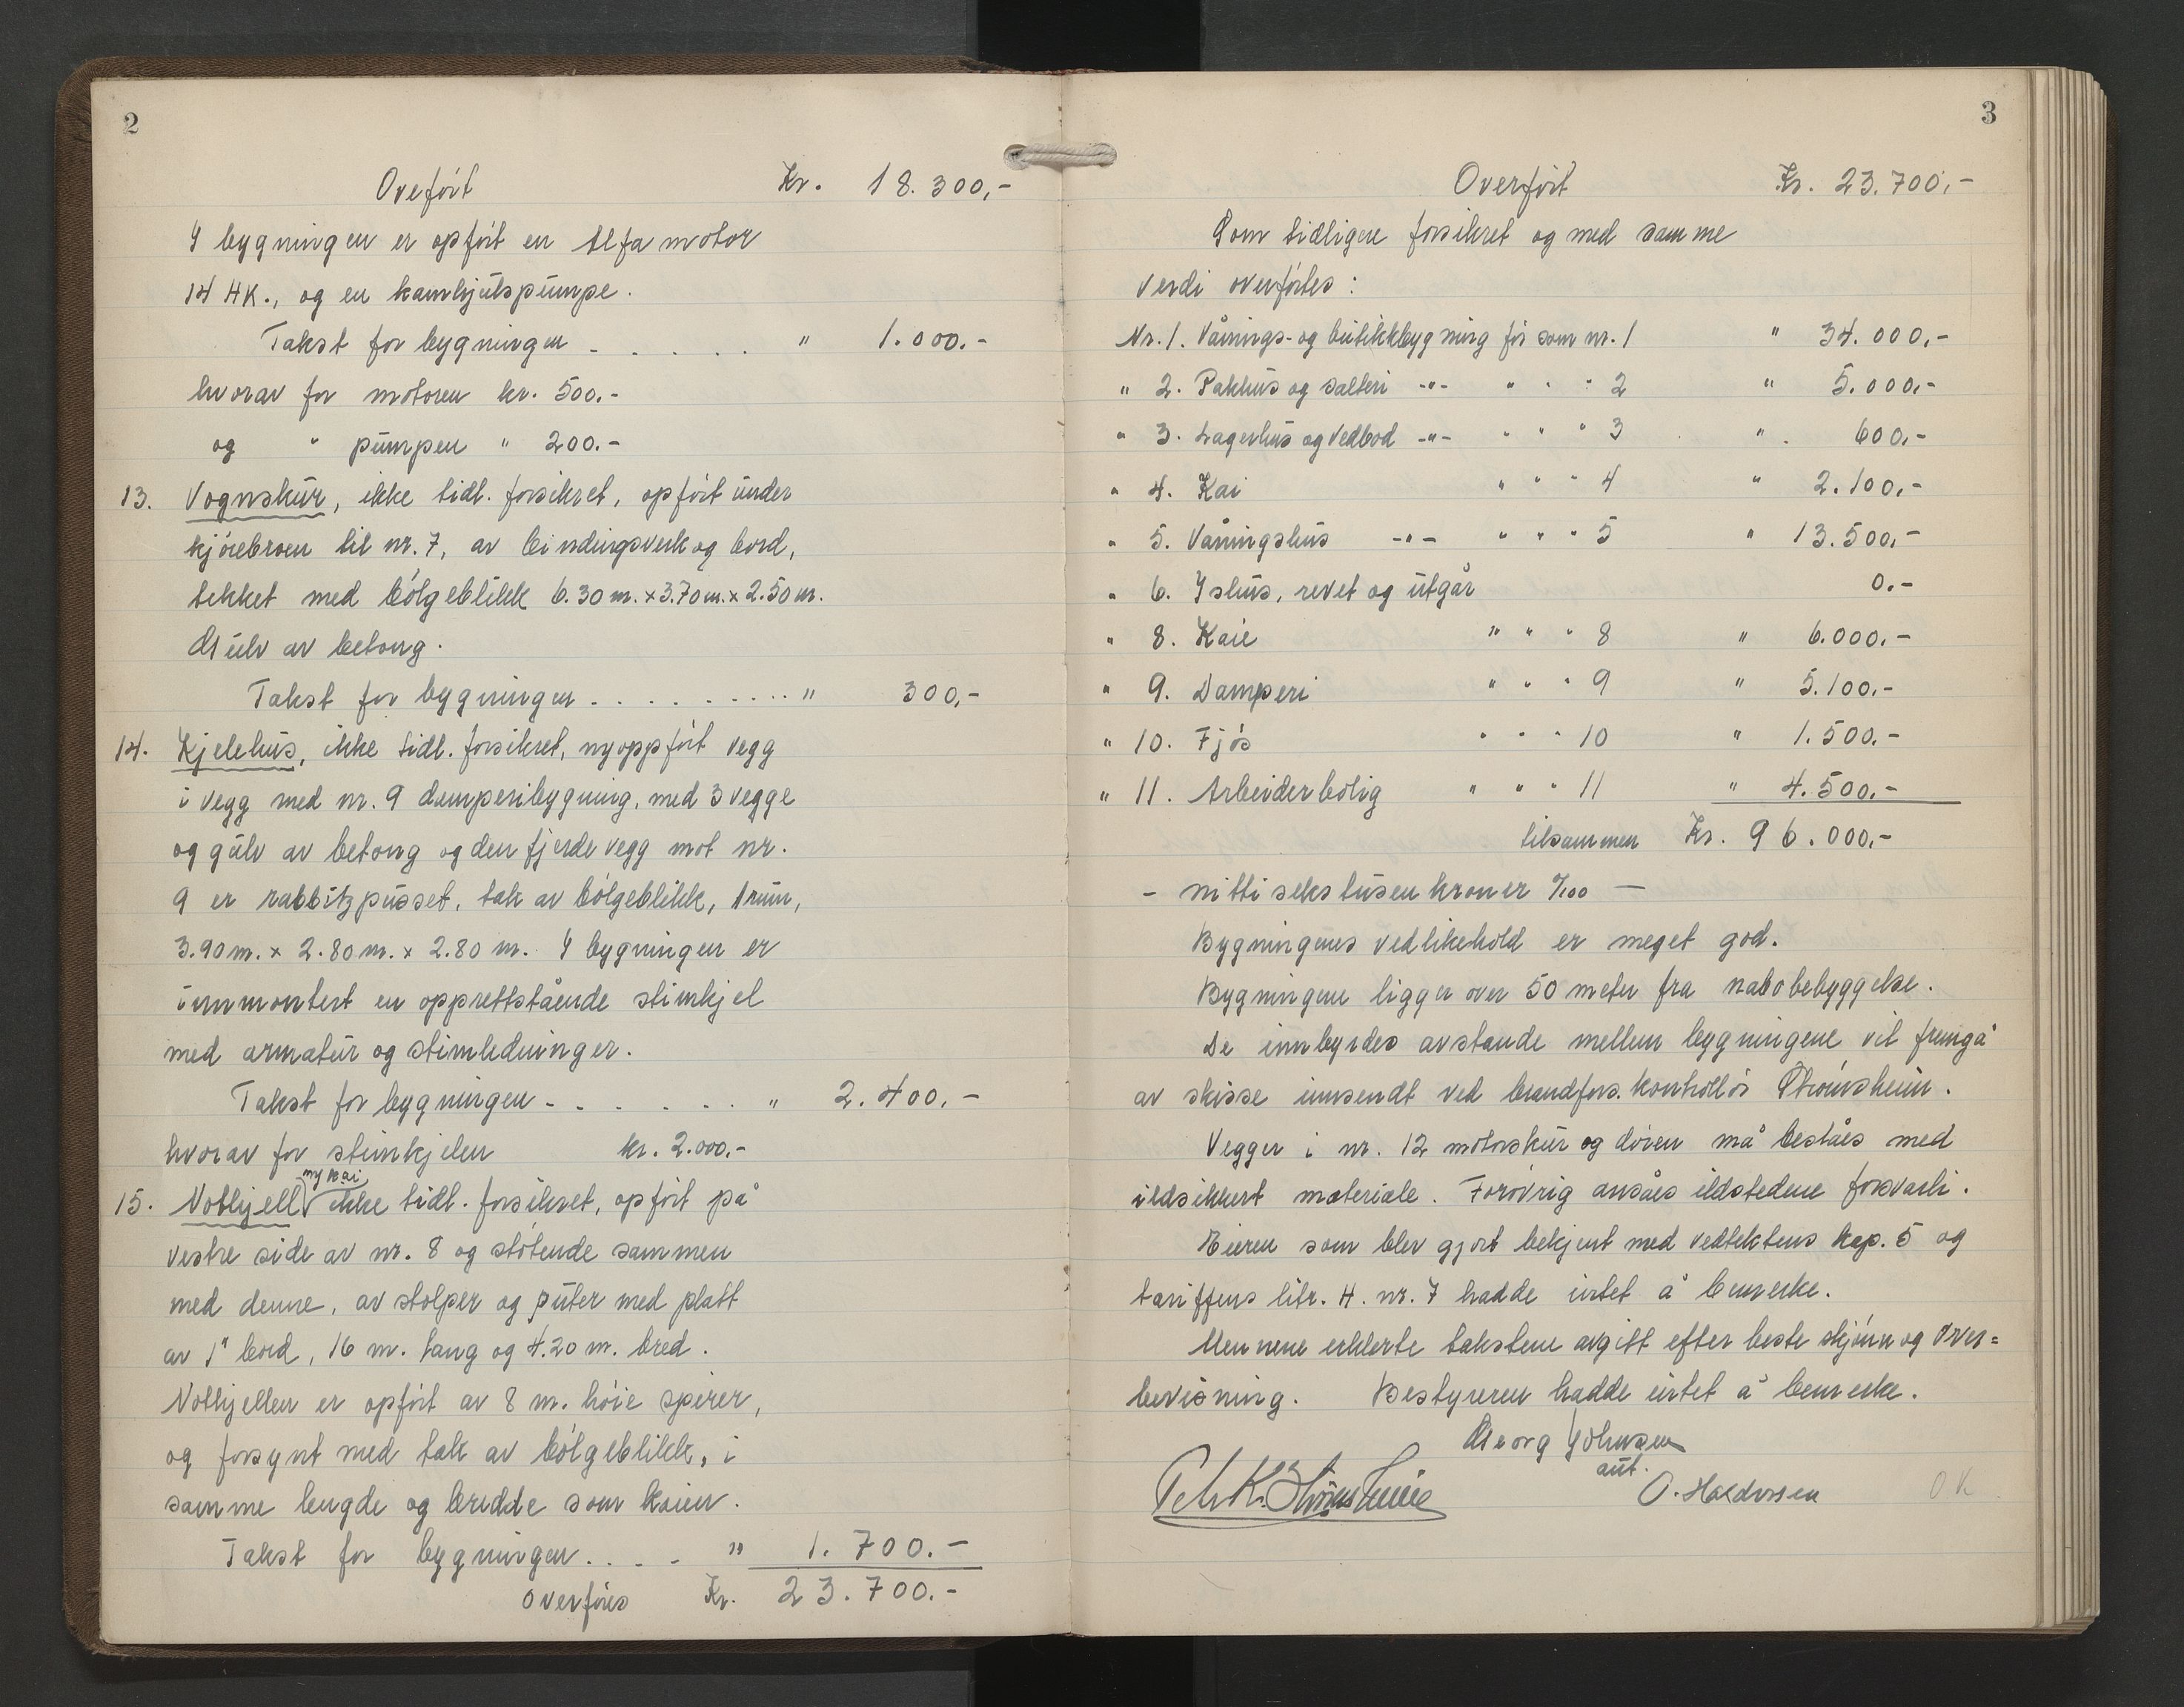 2
Oveført Kr. 18.300,-
I bygningen er opført en Alfa motor
14 HK., og en kamhjulspumpe.
Takst for bygningen - . . . . . " 1.000.-
hvorav for motoren kr. 500.-
og " pumpen " 200.-
13. Vognskur, ikke tidl. forsikret, opført under
kjørebroen til nr. 7, av bindingsverk og bord,
tekket med bølgeblikk 6.30 m. x 3.70 m. x 2.50 m.
Gulv av betong.
Takst for bygningen . . . . . . . . . . " 300,-
14. Kjelehus, ikke tidl. forsikret, nyoppført vegg
i vegg med nr. 9 damperibygning, med 3 vegge
og gulv av betong og den fjerde vegg mot nr.
9 er rabbitzpusset, tak av bølgeblikk, 1 rum,
3.90 m. x 2.80 m. x 2.80 m. I bygningen er
innmontert en opprettstående stimkjel
med armatur og stimledninger.
Takst for bygningen - . . . . . . " 2.400.-
hvorav for stimkjelen kr. 2.000.-
15. Nothjell ny kai, ikke tidl. forsikret, opført på
vestre side av nr. 8 og støtende sammen
med denne, av stolper og puter med platt
av 1" bord, 16 m. lang og 4.20 m. bred.
Nothjellen er opført av 8 m. høie spirer,
og forsynt med tak av bølgeblikk, i
samme lengde og bredde som kaien.
Takst for bygningen . . . - " 1.700.-
overføres Kr. 23.700.-
3
Overført Kr. 23.700,-
Som tidligere forsikret og med samme
verdi overførtes:
Nr. 1. Vånings- og butikkbygning før som nr. 1 " 34.000,-
" 2. Pakhus og salteri -"- " " " 2 " 5.000,-
" 3. Lagerhus og vedbod -"- " " " 3 " 600,-
" 4. Kai " " " 4 " 2.100,-
" 5. Våningshus -"- " " " 5 " 13.500,-
" 6. Ishus, revet og utgår 0.-
" 8. Kaie " " " 8 " 6.000.-
" 9. Damperi " " " 9 " 5.100.-
" 10. Fjøs " " " 10 " 1.500.-
" 11. Arbeiderbolig " " " 11 " 4.500.-
tilsammen Kr. 96.000,-
- nitti seks tusen kroner 0/100 -
Bygningenes vedlikehold er meget god.
Bygningene ligger over 50 meter fra nabobebyggelse.
De innbyrdes avstande mellem bygningene vil fremgå
av skisse innsendt ved brandfors. kontrollør Thorinsheim.
Vegger i nr. 12 motorskur og døren må beslåes med
ildsikkert materiale. Forøvrig ansåes ildstedene forsvarli.
Eieren som blev gjort bekjent med vedtektens kap. 5 og
tariffens litr. H. nr. 7 hadde intet å bemerke.
Mennene erklerte takstene avgitt efter beste skjønn og over=
bevisning. Bestyreren hadde intet å bemerke.
Georg Johnsen
ant.
O. Haldorsen
OK